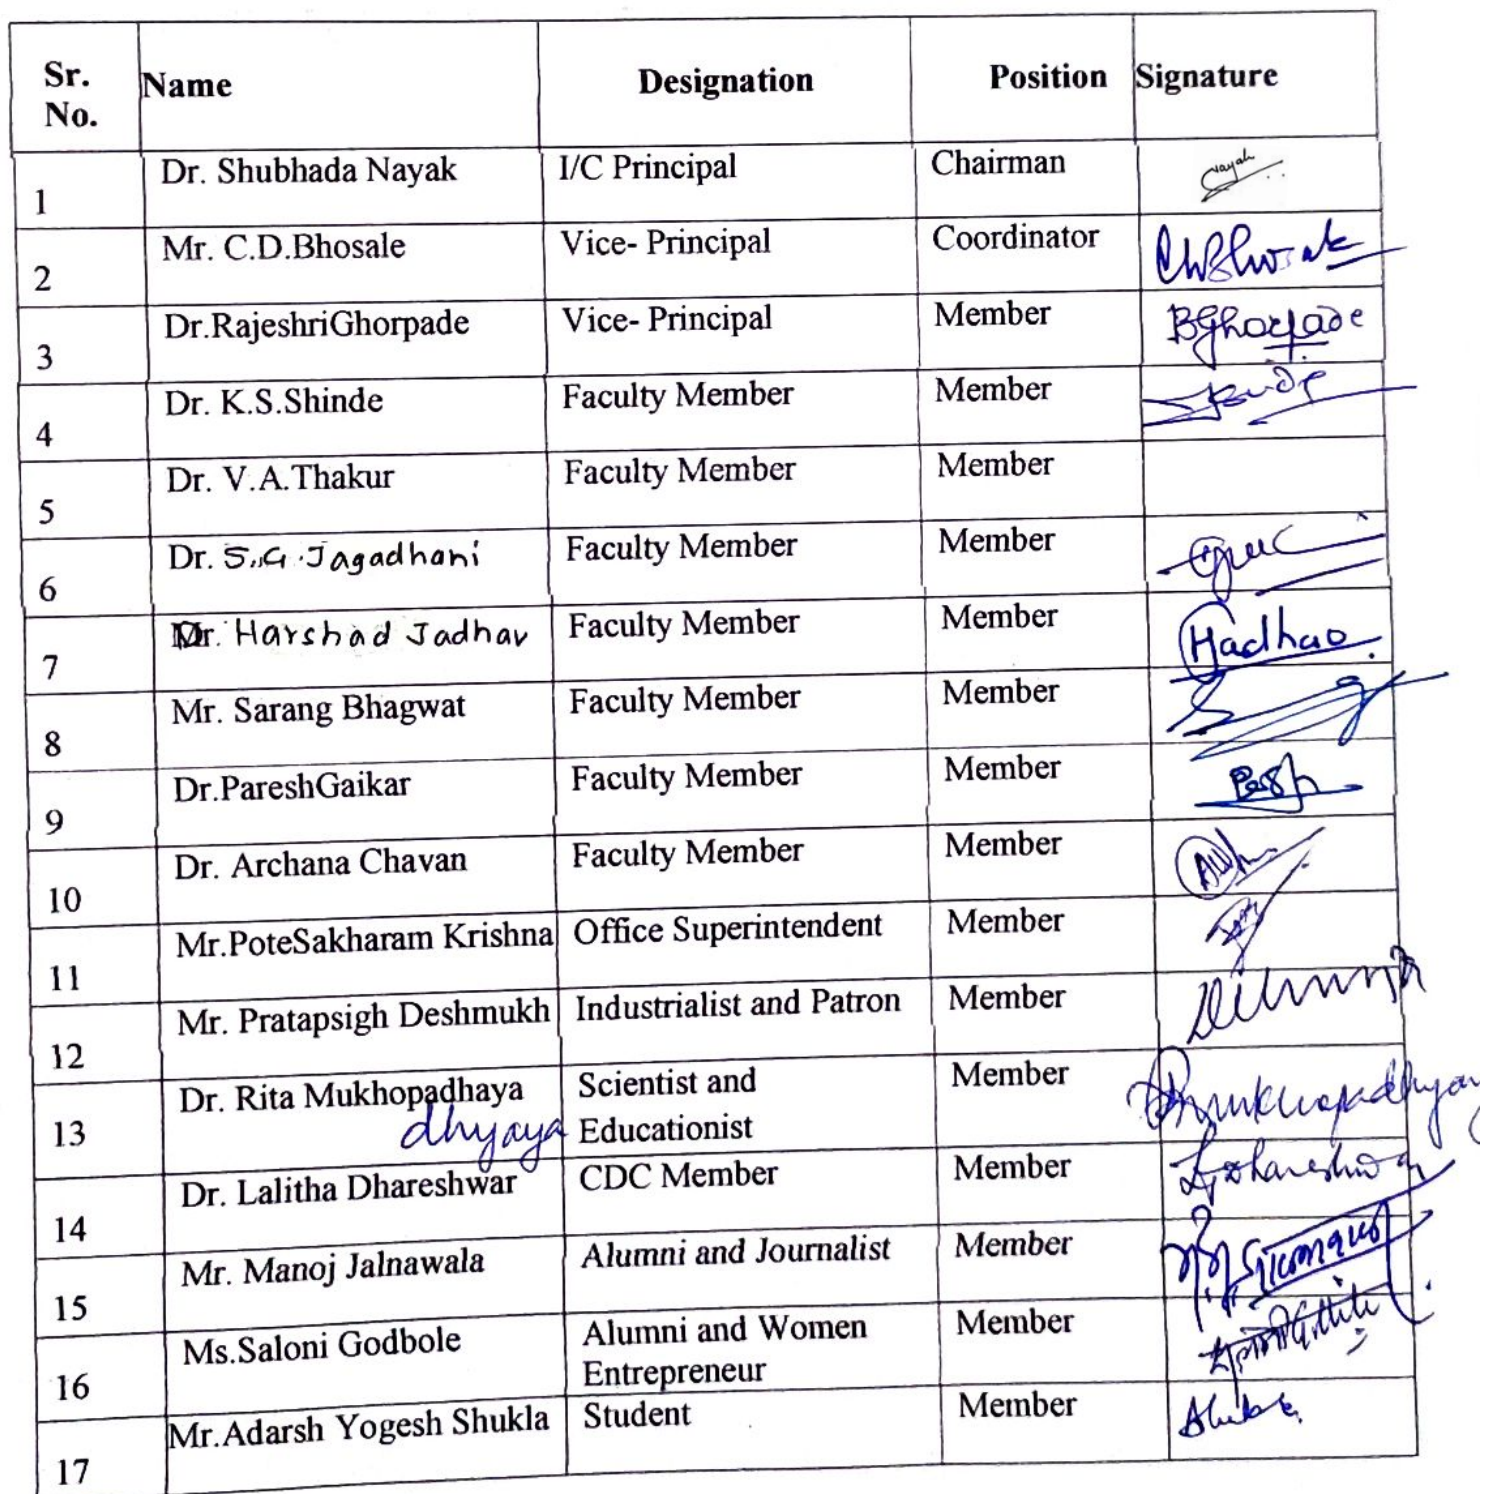 Sr. No. Name Designation Position Signature
1 Dr. Shubhada Nayak I/C Principal Chairman Nayak
2 Mr. C.D.Bhosale Vice- Principal Coordinator
3 Dr.RajeshriGhorpade Vice- Principal Member BGhorpade
4 Dr. K.S.Shinde Faculty Member Member
5 Dr. V.A.Thakur Faculty Member Member
6 Dr. S.G.Jagadhani Faculty Member Member
7 Mr. Harshad Jadhav Faculty Member Member
8 Mr. Sarang Bhagwat Faculty Member Member
9 Dr.PareshGaikar Faculty Member Member
10 Dr. Archana Chavan Faculty Member Member
11 Mr.PoteSakharam Krishna Office Superintendent Member
12 Mr. Pratapsigh Deshmukh Industrialist and Patron Member
13 Dr. Rita Mukhopadhaya Scientist and Member
dhyaya Educationist
14 Dr. Lalitha Dhareshwar CDC Member Member
15 Mr. Manoj Jalnawala Alumni and Journalist Member
16 Ms.Saloni Godbole Alumni and Women Member
Entrepreneur
17 Mr.Adarsh Yogesh Shukla Student Member